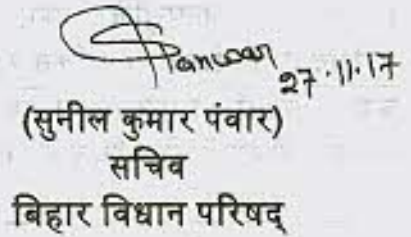 SPanwar
27.11.17
(सुनील कुमार पंवार)
सचिव
बिहार विधान परिषद्